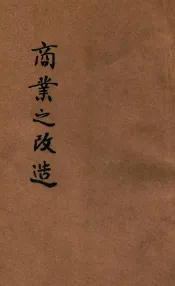 商業之改造